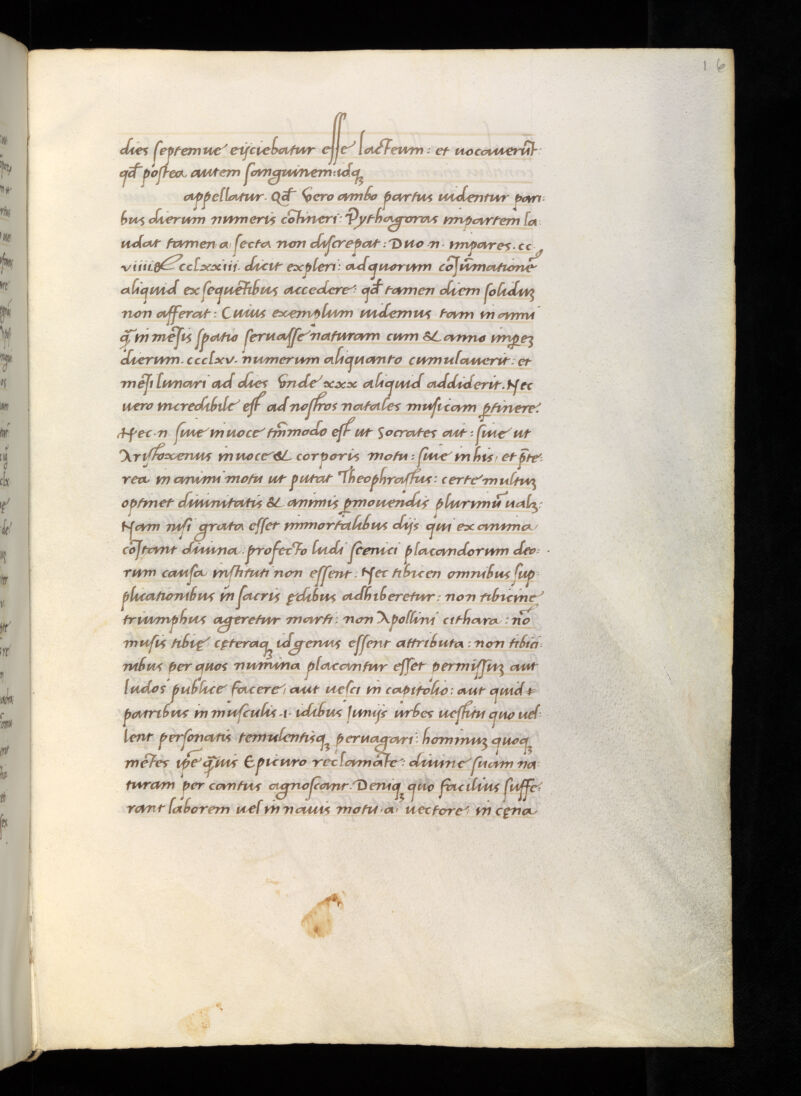 16
dies septemue eijciebatur esse lacteum: et uocauerūt
qd̄ postea autem sanguinem: idq;
appellatur. Qd̄ vero ambo partus uidentur pari
bus dierum numeris cōtineri: Pythagoras imparem la
udat tamen a secta non discrepat: Duo .n. impares .cc
viiii & cclxxiii dicit expleri: ad quorum cōsūmationē
aliquid ex sequētibus accedere: qd̄ tamen diem solidum
non afferat: Cuius exemplum uidemus tam in anni
q̄ in mēsis spatio seruasse naturam cum & anno imp̄em
dierum .ccclxv. numerum aliquanto cumulauerit: et
mēsi lunari ad dies vnde xxx aliquid addiderit. Nec
uero incredibile est ad nostros natales musicam ꝑtinere:
Nec .n. siue in uoce tm̄modo est ut Socrates ait: siue ut
Aristoxenus in uoce & corporis motu: siue in his, et p̄te
rea in animi motu ut putat Theophrastus: certe multum
optinet diuinitatis & animis ꝑmouendis plurimū ualet:
Nam nisi grata esset immortalibus dijs qui ex anima
cōstant diuina. profecto ludi scenici placandorum deo
rum causa instituti non essent. Nec tibicen omnibus sup
plicationibus in sacris ędibus adhiberetur: non tibicine
triumphus ageretur marti: non Apollini cithara: nō
musis tibię cęteraq; id genus essent attributa: non tibici
nibus per quos numina placantur esset permissum aut
ludos publice facere, aut uesci in capitolio: aut quid t
patribus in musculis .i. idibus Iunijs urbes uestitu quo uel
lent personatis temulentisq; peruagari: hominum quoq;
mētes ip̄e q̄uis Epicuro reclamāte: diuine suam na
turam per cantus agnoscant. Deniq; quo facilius suffe
rant laborem uel in nauis motu a vectore: in cęna